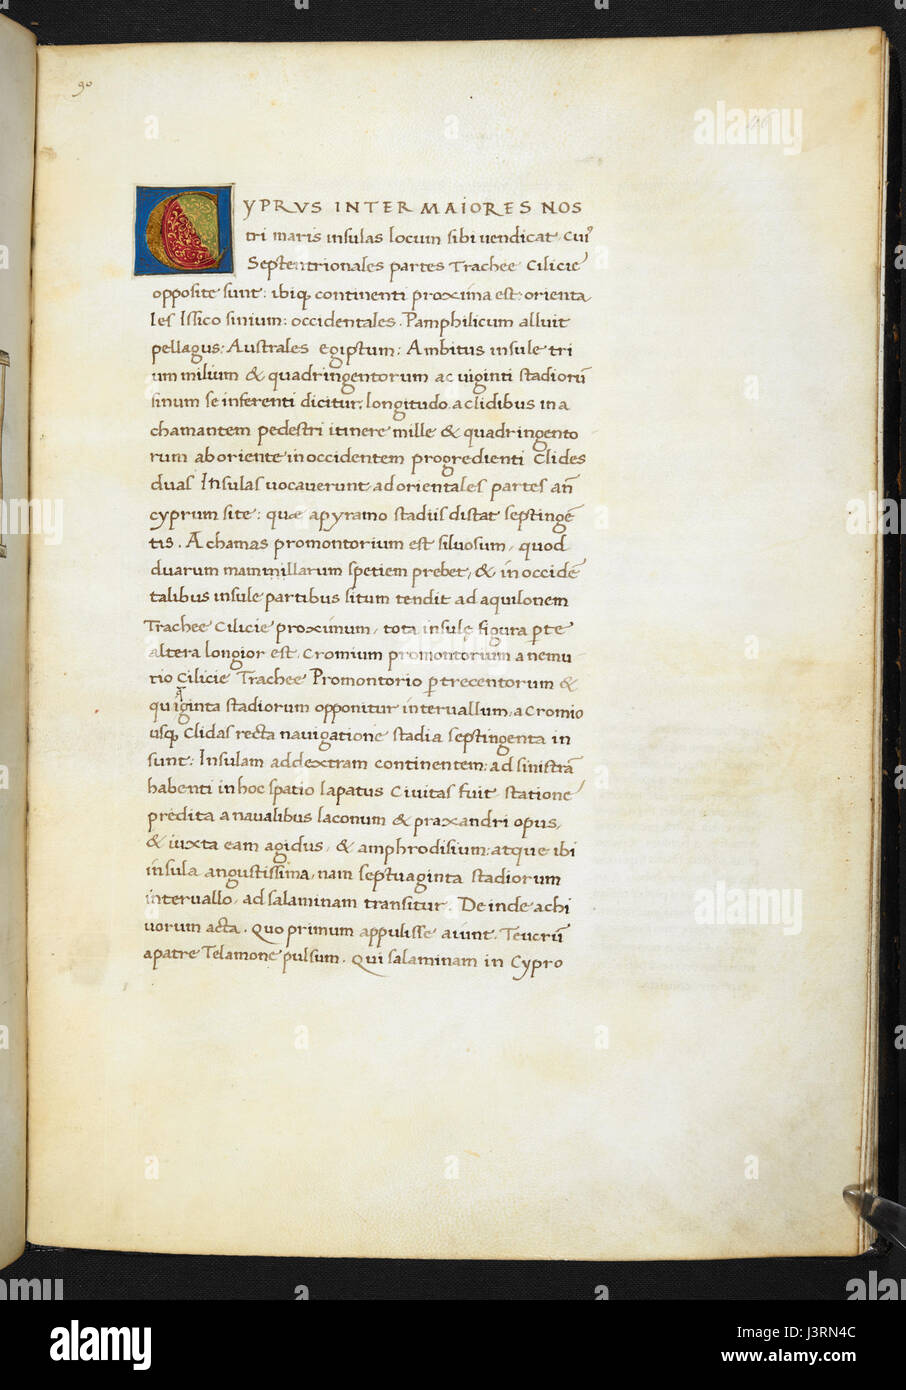 90
CYPRVS INTER MAIORES NOS
tri maris insulas locum sibi vendicat. Cuiꝰ
Septentrionales partes Trachee Cilicie
opposite sunt: ibiq; continenti proxima est: orienta
les Issico sinium: occidentales. Pamphilicum alluit
pellagus: Australes egiptum: Ambitus insule tri
um milium & quadringentorum ac uiginti stadiorū
sinum se inferenti dicitur, longitudo a clidibus in a
chamantem pedestri itinere mille & quadringento
rum ab oriente in occidentem progredienti Clides
duas Insulas uocauerunt ad orientales partes an̄
cyprum site: quae a pyramo stadiis distat septingē
tis. Achamas promontorium est siluosum, quod
duarum mammillarum spetiem prebet, & in occidē
talibus insule partibus situm tendit ad aquilonem
Trachee Cilicie proximum, tota insule figura ꝑte
altera longior est, Cromium promontorium a nemu
rio Cilicie Trachee Promontorio ꝑ trecentorum &
quiginta stadiorum opponitur interuallum, a Cromio
usq; Clidas recta nauigatione stadia septingenta in
sunt: Insulam ad dextram continentem: ad sinistrā
habenti in hoc spatio lapatus Ciuitas fuit statione
predita a naualibus laconum & praxandri opus,
& iuxta eam agidus, & amphrodisium: atque ibi
insula angustissima, nam septuaginta stadiorum
interuallo, ad salaminam transitur. Deinde achi
uorum acta. Quo primum appulisse aiunt. Teucrū
a patre Telamone pulsum. Qui salaminam in Cypro
alamy
Image ID: J3RN4C
www.alamy.com